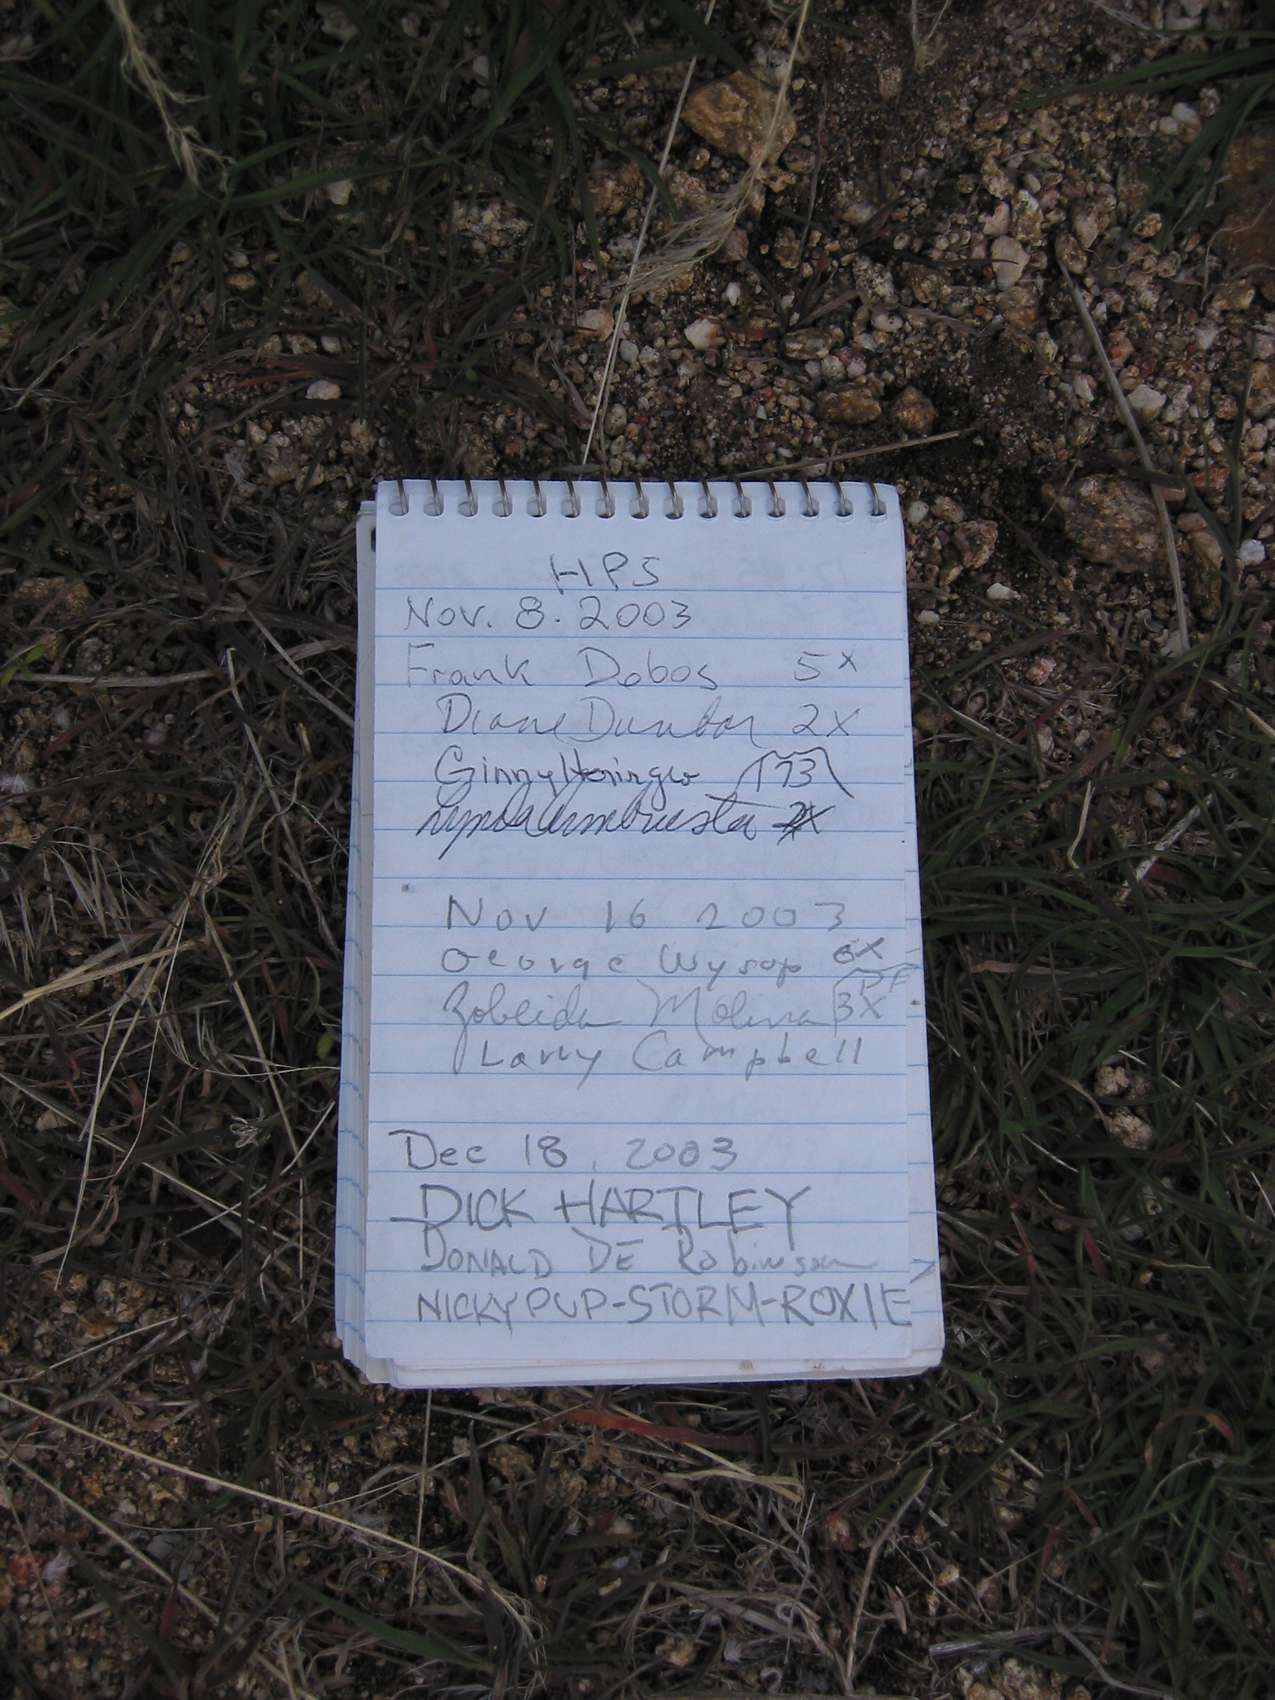 HPS
Nov. 8. 2003
Frank Dobos 5x
Diane Dunbar 2X
Ginny Heninger 173
Lynda Armbruster X
Nov 16 2003
George Wysup 6X
Zobeida Molina 3X PF
Larry Campbell
Dec 18, 2003
DICK HARTLEY
DONALD DE Robinson
NICKYPUP-STORM-ROXIE